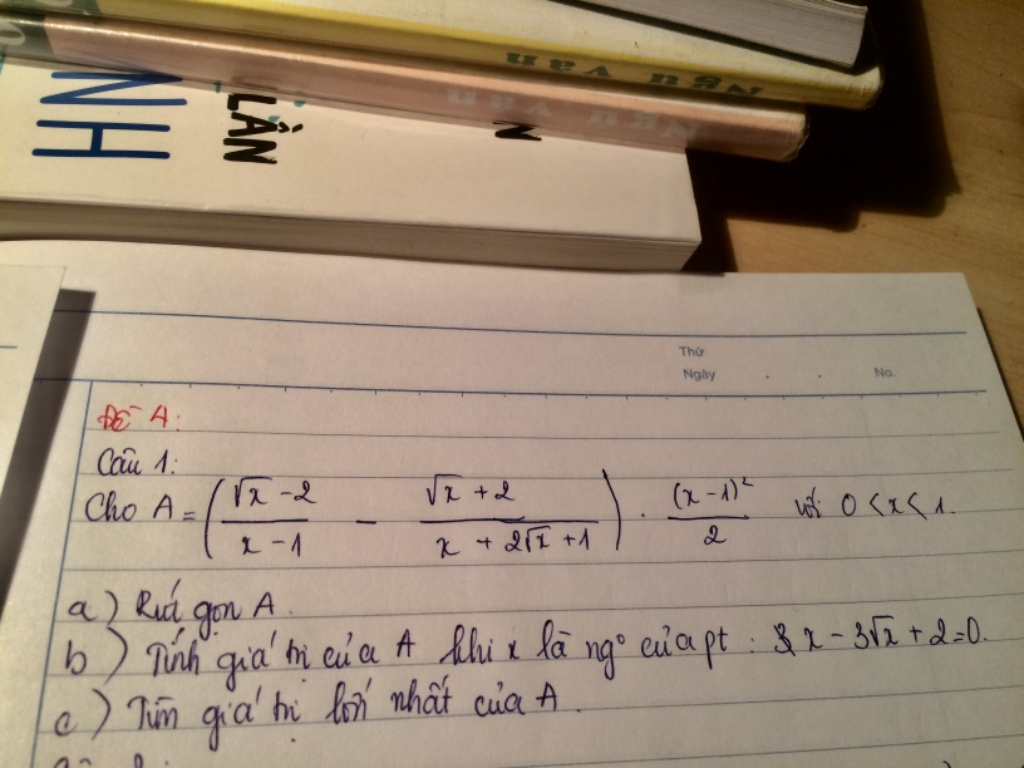 Ngữ văn
Ngữ văn
NH
LẦN
N
Thứ
Ngày . . No.
Đề A:
Câu 1:
Cho A = ( (√x - 2)/(x - 1) - (√x + 2)/(x + 2√x + 1) ) · (x - 1)²/2 với 0 < x < 1.
a) Rút gọn A.
b) Tính giá trị của A khi x là ng° của pt: x - 3√x + 2 = 0.
c) Tìm giá trị lớn nhất của A.